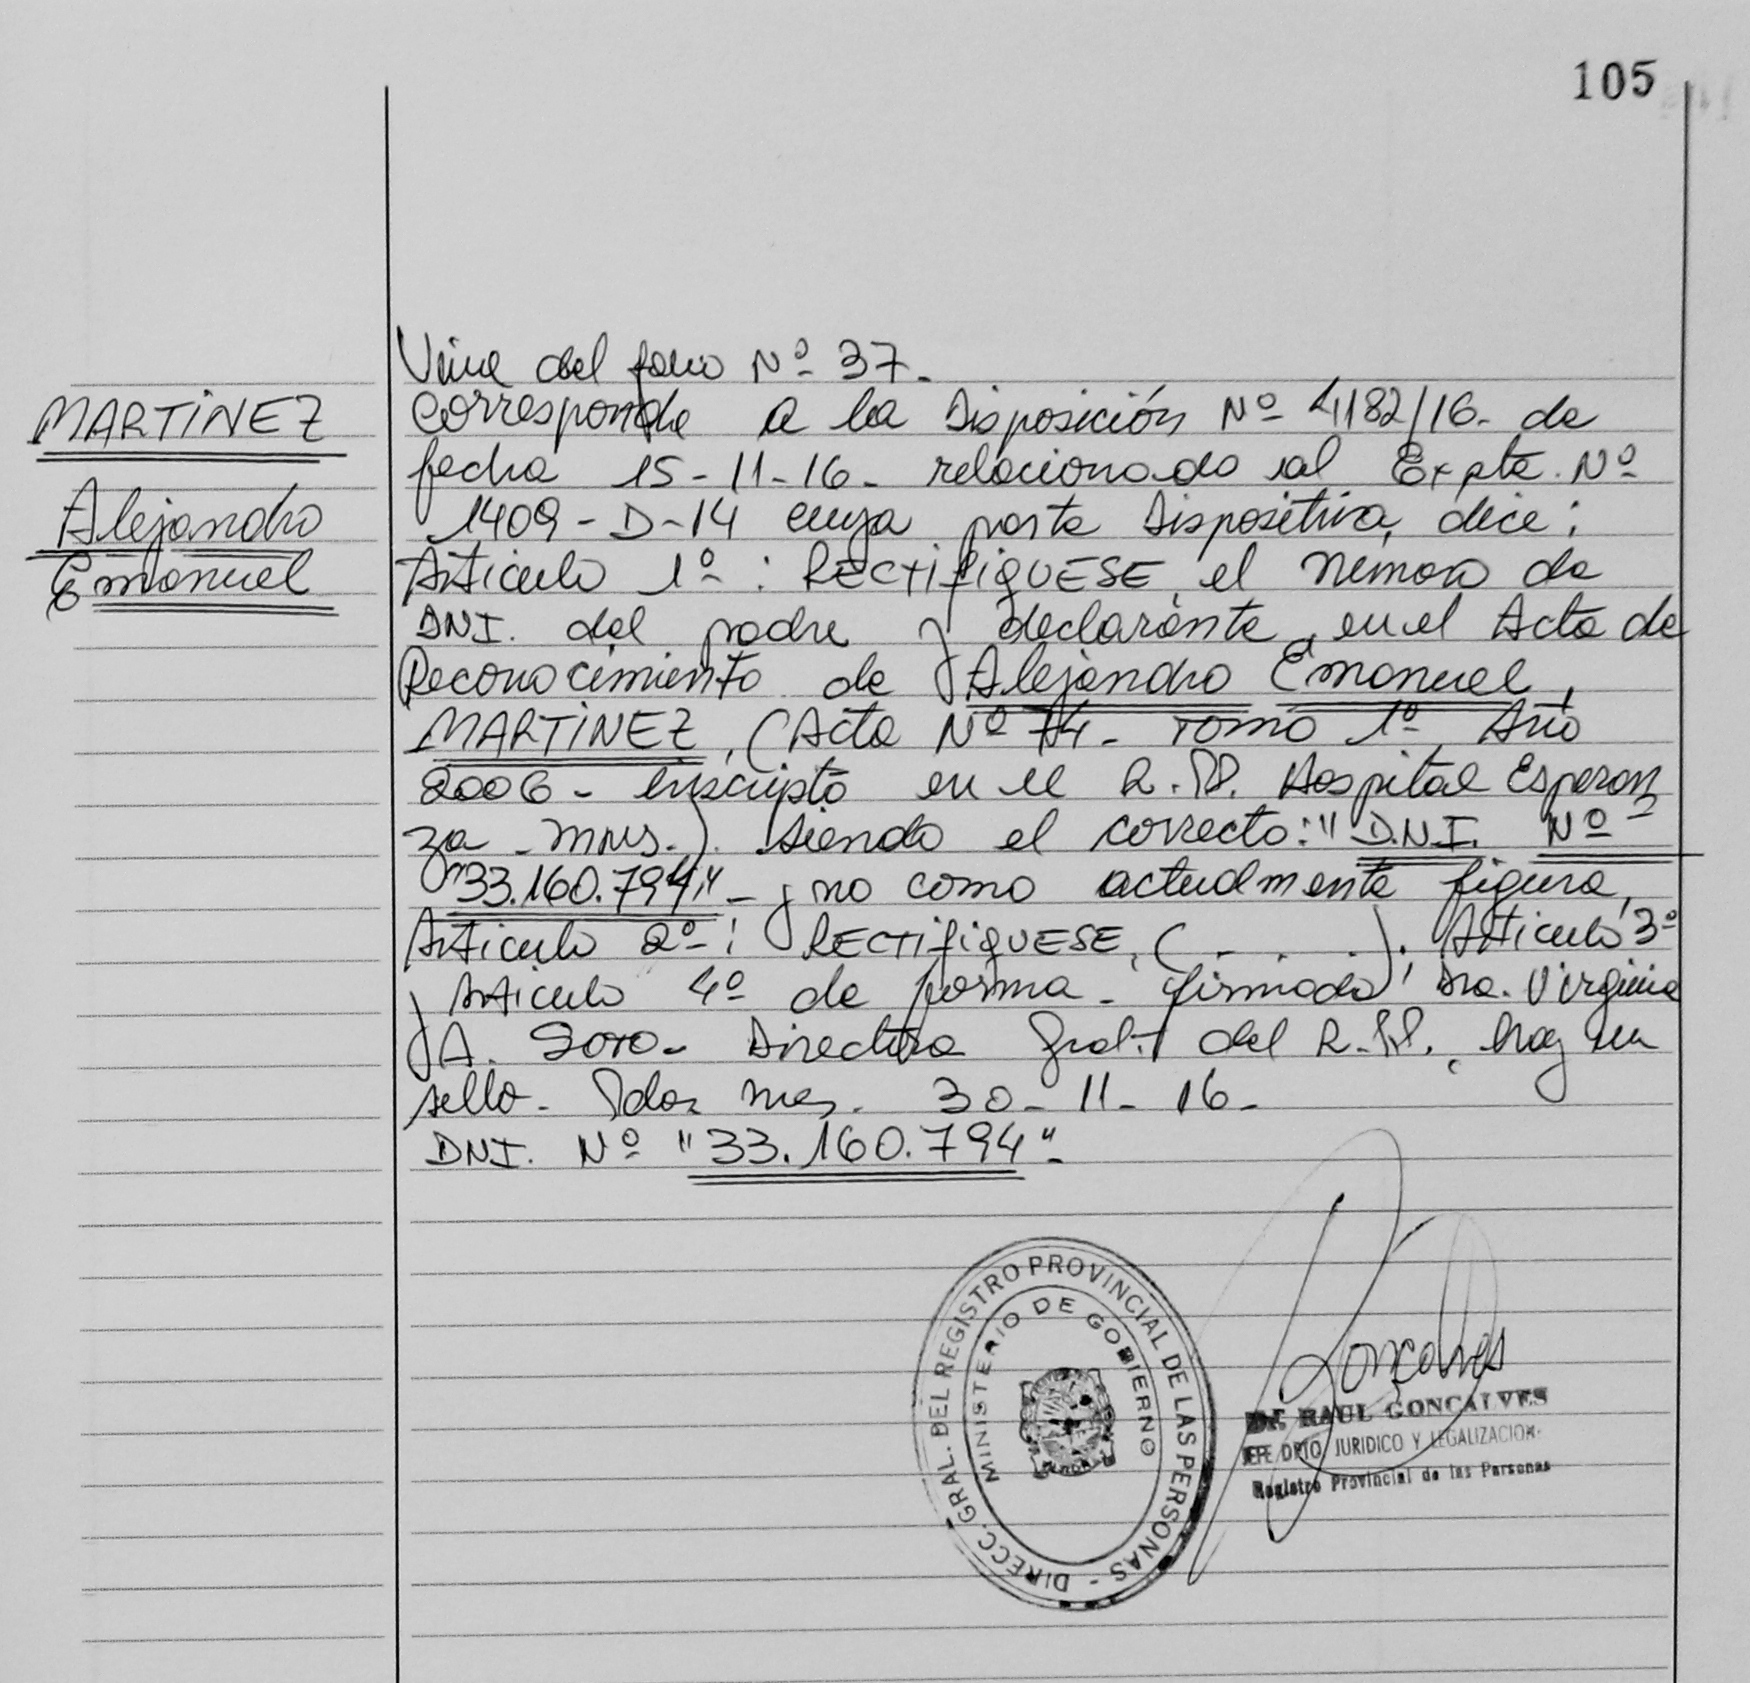 105
MARTINEZ
Alejandro
Emanuel
Viene del folio Nº 37.
Corresponde a la Disposición Nº 4182/16. de
fecha 15-11-16- relacionado al Expte. Nº
1409-D-14 cuya parte Dispositiva, dice:
Articulo 1º: RECTIFIQUESE, el Número de
DNI. del padre y declarante, en el Acta de
Reconocimiento de Alejandro Emanuel
MARTINEZ, (Acta Nº 74- Tomo 1º Año
2006- inscripto en el R.P.P. Hospital Esperan
za - Mnes.). siendo el correcto: "D.N.I. Nº
"33.160.794"- y no como actualmente figura,
Articulo 2º: RECTIFIQUESE, (. . . .). Articulo 3º
y Articulo 4º de forma. firmado: Dra. Virginia
A. Directora Gral. del R.P.P. hay un
sello. Pdas Mes. 30-11-16-
DNI. Nº "33.160.794"-
DIRECC. GRAL. DEL REGISTRO PROVINCIAL DE LAS PERSONAS -
MINISTERIO DE GOBIERNO
Gonçalves
Dr. RAUL GONCALVES
JEFE DPTO. JURIDICO Y LEGALIZACION
Registro Provincial de las Personas